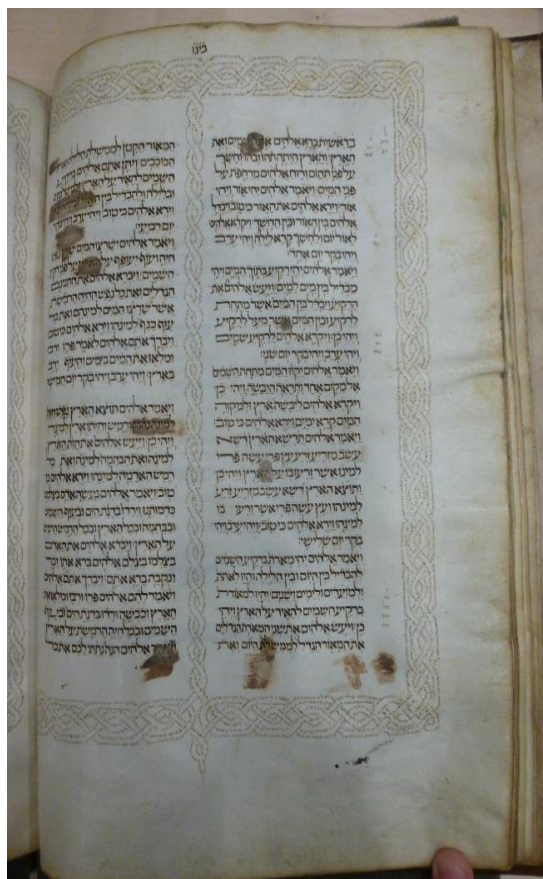 בראשית ברא אלהים את השמים ואת
הארץ והארץ היתה תהו ובהו וחשך
על פני תהום ורוח אלהים מרחפת על
פני המים ויאמר אלהים יהי אור ויהי
אור וירא אלהים את האור כי טוב ויבדל
אלהים בין האור ובין החשך ויקרא אלהים
לאור יום ולחשך קרא לילה ויהי ערב
ויהי בקר יום אחד
ויאמר אלהים יהי רקיע בתוך המים ויהי
מבדיל בין מים למים ויעש אלהים את
הרקיע ויבדל בין המים אשר מתחת
לרקיע ובין המים אשר מעל לרקיע
ויהי כן ויקרא אלהים לרקיע שמים
ויהי ערב ויהי בקר יום שני
ויאמר אלהים יקוו המים מתחת השמים
אל מקום אחד ותראה היבשה ויהי כן
ויקרא אלהים ליבשה ארץ ולמקוה
המים קרא ימים וירא אלהים כי טוב
ויאמר אלהים תדשא הארץ דשא
עשב מזריע זרע עץ פרי עשה פרי
למינו אשר זרעו בו על הארץ ויהי כן
ותוצא הארץ דשא עשב מזריע זרע
למינהו ועץ עשה פרי אשר זרעו בו
למינהו וירא אלהים כי טוב ויהי ערב ויהי
בקר יום שלישי
ויאמר אלהים יהי מארת ברקיע השמים
להבדיל בין היום ובין הלילה והיו לאתת
ולמועדים ולימים ושנים והיו למאורת
ברקיע השמים להאיר על הארץ ויהי
כן ויעש אלהים את שני המארת הגדלים
את המאור הגדל לממשלת היום ואת
המאור הקטן לממשלת הלילה ואת
הכוכבים ויתן אתם אלהים ברקיע
השמים להאיר על הארץ ולמשל ביום
ובלילה ולהבדיל בין האור ובין החשך
וירא אלהים כי טוב ויהי ערב ויהי בקר
יום רביעי
ויאמר אלהים ישרצו המים שרץ נפש
חיה ועוף יעופף על הארץ על פני רקיע
השמים ויברא אלהים את התנינם
הגדלים ואת כל נפש החיה הרמשת
אשר שרצו המים למינהם ואת כל
עוף כנף למינהו וירא אלהים כי טוב
ויברך אתם אלהים לאמר פרו ורבו
ומלאו את המים בימים והעוף ירב
בארץ ויהי ערב ויהי בקר יום חמישי
ויאמר אלהים תוצא הארץ נפש חיה
למינה בהמה ורמש וחיתו ארץ למינה
ויהי כן ויעש אלהים את חית הארץ
למינה ואת הבהמה למינה ואת כל
רמש האדמה למינהו וירא אלהים כי
טוב ויאמר אלהים נעשה אדם בצלמנו
כדמותנו וירדו בדגת הים ובעוף השמים
ובבהמה ובכל הארץ ובכל הרמש הרמש
על הארץ ויברא אלהים את האדם
בצלמו בצלם אלהים ברא אתו זכר
ונקבה ברא אתם ויברך אתם אלהים
ויאמר להם אלהים פרו ורבו ומלאו את
הארץ וכבשה ורדו בדגת הים ובעוף
השמים ובכל חיה הרמשת על הארץ
ויאמר אלהים הנה נתתי לכם את כל